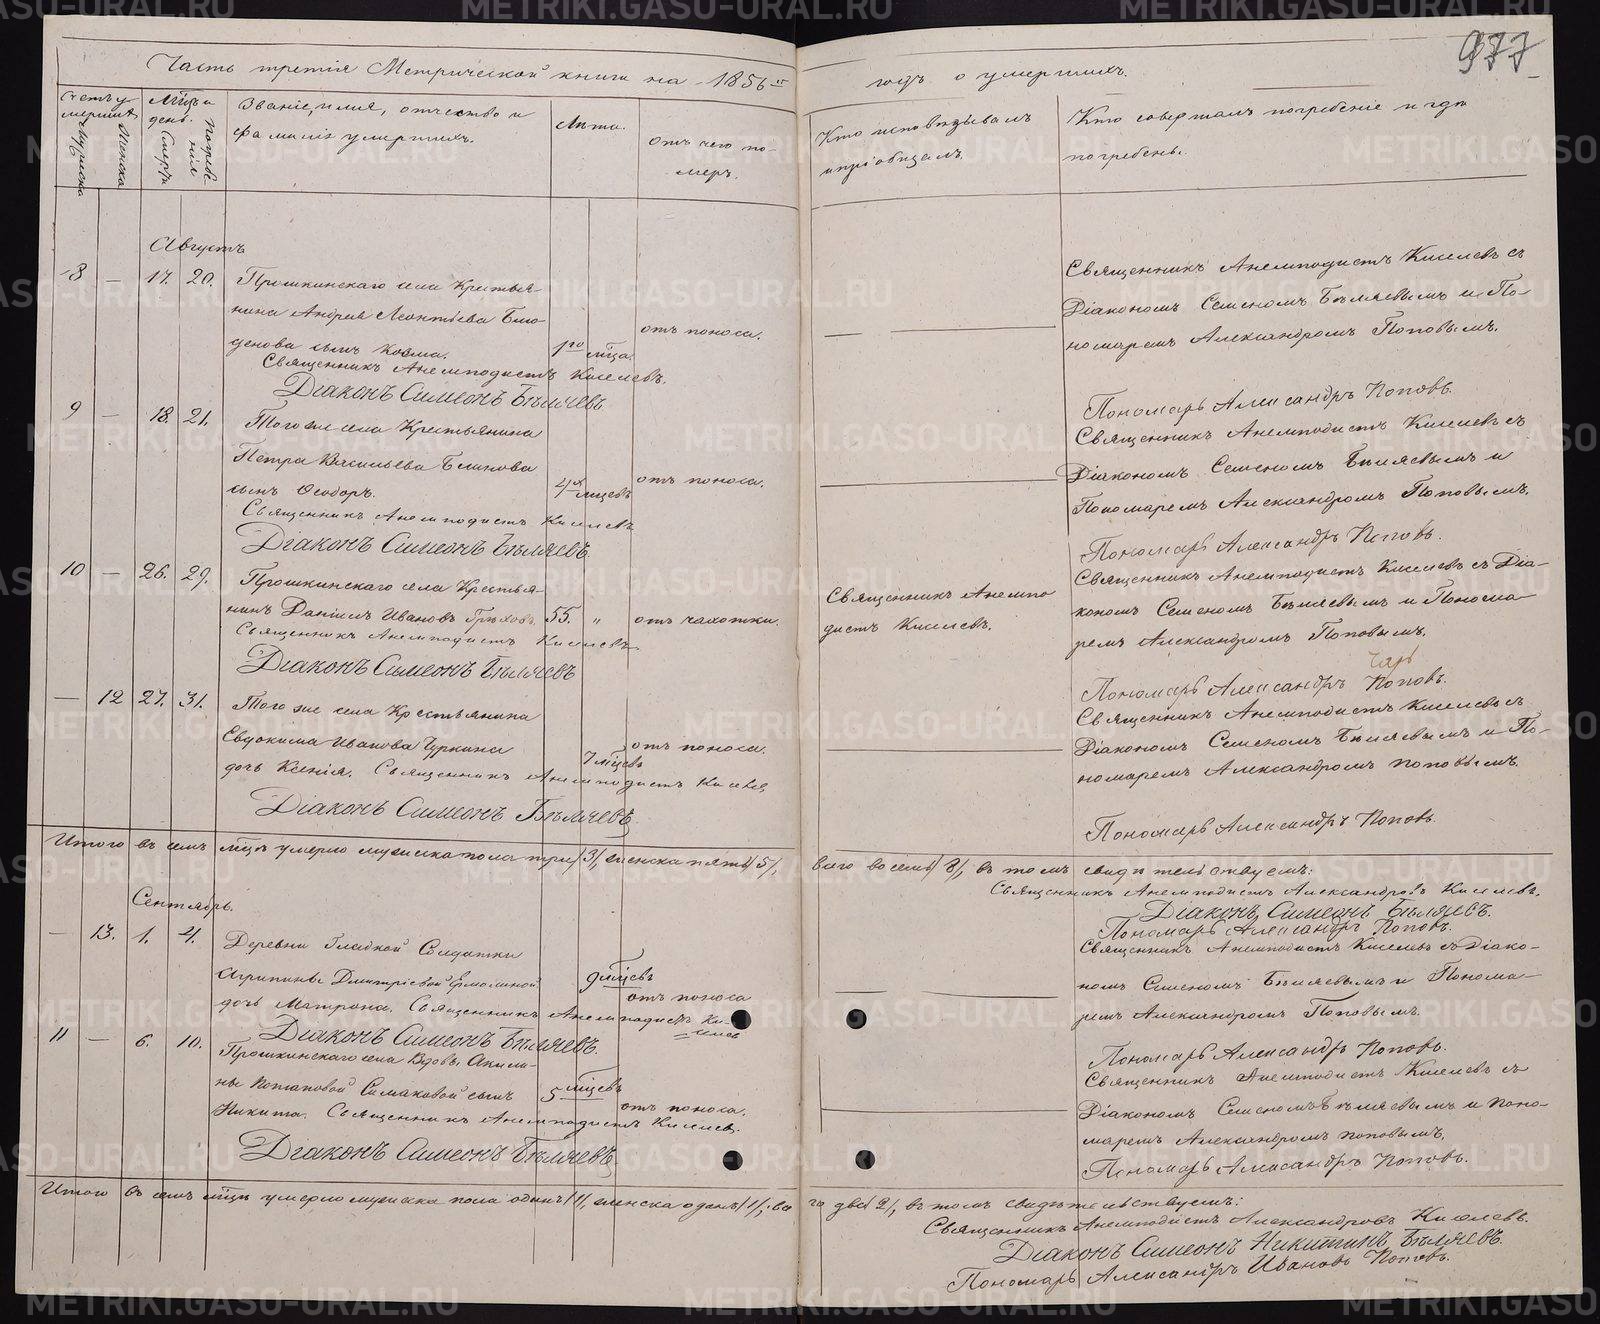 Часть третія Метрической книги на 1856й
годъ о умершихъ.
977
Счетъ умершихъ
Мужеска
Женска
Мѣсяцъ и день.
Смерти
Погребенія
Званіе, имя, отчество и
фамилія умершихъ.
Лѣта.
Отъ чего по-
меръ.
Кто исповѣдывалъ
и пріобщалъ.
Кто совершалъ погребеніе и гдѣ
погребены.
Августъ
8 — 17. 20. Прошкинскаго села Крестья-
нина Андрея Леонтьева
сынъ Козма.
1го мѣца.
отъ поноса.
Священникъ Анемподистъ Киселевъ.
Діаконъ Симеонъ Бѣляевъ
Священникъ Анемподистъ Киселевъ съ
Діакономъ Семеномъ Бѣляевымъ и По-
номаремъ Александромъ Поповымъ.
Пономарь Александръ Поповъ.
9 — 18. 21. Того же села Крестьянина
Петра Васильева Блинова
сынъ Ѳеодоръ.
4хъ мѣцевъ
отъ поноса.
Священникъ Анемподистъ Киселевъ
Діаконъ Симеонъ Бѣляевъ
Священникъ Анемподистъ Киселевъ съ
Діакономъ Семеномъ Бѣляевымъ и
Пономаремъ Александромъ Поповымъ.
Пономарь Александръ Поповъ.
10 — 26. 29. Прошкинскаго села Крестья-
нинъ Даніилъ Ивановъ Грѣховъ. 55. "
отъ чахотки.
Священникъ Анемподистъ Киселевъ.
Діаконъ Симеонъ Бѣляевъ
Священникъ Анемпо
дистъ Киселевъ.
Священникъ Анемподистъ Киселевъ съ Діа-
кономъ Семеномъ Бѣляевымъ и Понома-
ремъ Александромъ Поповымъ.
Пономарь Александръ Поповъ.
— 12 27. 31. Того же села Крестьянина
Евдокима Иванова Чуркина
дочь Ксенія.
7 мѣцевъ
отъ поноса.
Священникъ Анемподистъ Киселевъ
Діаконъ Симеонъ Бѣляевъ
Священникъ Анемподистъ Киселевъ съ
Діакономъ Семеномъ Бѣляевымъ и По-
номаремъ Александромъ Поповымъ.
Пономарь Александръ Поповъ.
Итого въ семъ мѣцѣ умерло мужеска пола три /3/, женска пять /5/,
всего восемь /8/, въ томъ свидѣтельствуемъ:
Священникъ Анемподистъ Александровъ Киселевъ.
Діаконъ Симеонъ Бѣляевъ.
Пономарь Александръ Поповъ.
Сентябрь.
— 13. 1. 4. Деревни Гладкой Солдатки
Агрипины Дмитріевой Ермолиной
дочь Матрона.
9 мѣцевъ
отъ поноса
Священникъ Анемподистъ Ки-
селевъ
Діаконъ Симеонъ Бѣляевъ.
Священникъ Анемподистъ Киселевъ съ Діако-
номъ Семеномъ Бѣляевымъ и Понома-
ремъ Александромъ Поповымъ.
Пономарь Александръ Поповъ.
11 — 6. 10. Прошкинскаго села Вдовы Акили-
ны Потаповой Симаковой сынъ
Никита.
5 мѣцевъ
отъ поноса.
Священникъ Анемподистъ Киселевъ.
Діаконъ Симеонъ Бѣляевъ.
Священникъ Анемподистъ Киселевъ съ
Діакономъ Семеномъ Бѣляевымъ и Поно-
маремъ Александромъ Поповымъ.
Пономарь Александръ Поповъ.
Итого въ семъ мѣцѣ умерло мужеска пола одинъ /1/, женска одна /1/, все
го два /2/, въ томъ свидѣтельствуемъ:
Священникъ Анемподистъ Александровъ Киселевъ.
Діаконъ Симеонъ Никитинъ Бѣляевъ.
Пономарь Александръ Ивановъ Поповъ.
METRIKI.GASO-URAL.RU